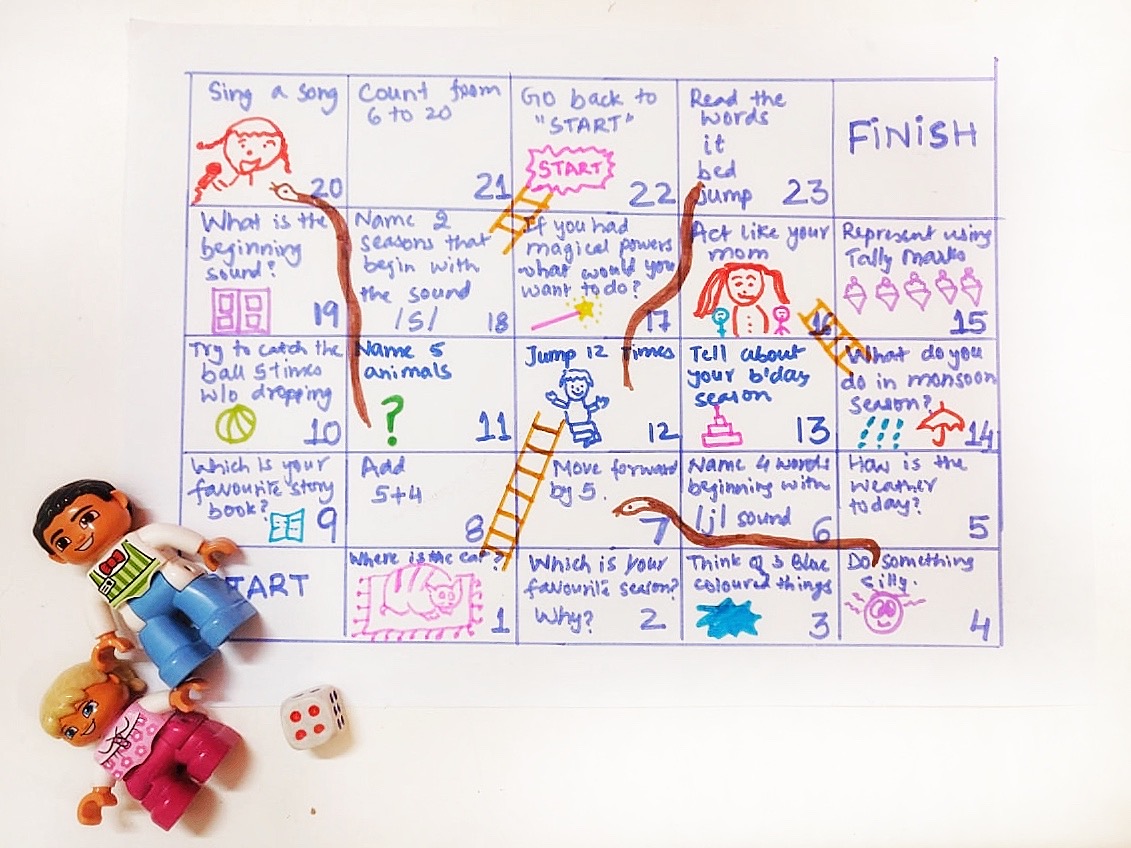 Sing a song
20
Count from
6 to 20
21
Go back to
"START"
START
22
Read the
words
it
bed
jump
23
FiNiSH
What is the
beginning
sound?
19
Name 2
seasons that
begin with
the sound
/S/
18
If you had
magical powers
what would you
want to do?
17
Act like your
mom
16
Represent using
Tally marks
15
Try to catch the
ball 5 times
w/o dropping
10
Name 5
animals
?
11
Jump 12 times
12
Tell about
your b'day
season
13
What do you
do in monsoon
season?
14
Which is your
favourite story
book?
9
Add
5+4
8
Move forward
by 5.
7
Name 4 words
beginning with
/j/ sound
6
How is the
weather
today?
5
TART
Where is the cat?
1
Which is your
favourite season?
Why?
2
Think of 3 Blue
coloured things
3
Do something
silly.
4